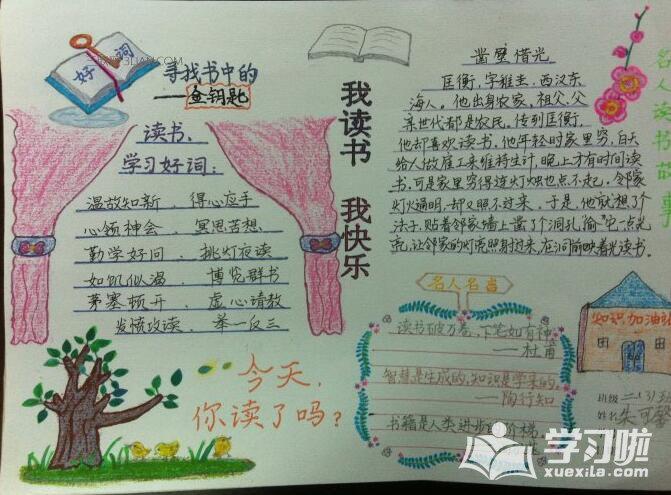 好词
寻找书中的
——金钥匙
读书、
学习好词：
温故知新、得心应手
心领神会、冥思苦想
勤学好问、挑灯夜读
如饥似渴、博览群书
茅塞顿开、虚心请教
发愤攻读、举一反三
今天，
你读了吗？
我读书 我快乐
凿壁借光
匡衡，字稚圭，西汉东
海人。他出身农家，祖父、父
亲世代都是农民。传到匡衡，
他却喜欢读书，他年轻时家里穷，白天
给人做雇工来维持生计，晚上才有时间读
书。可是家里穷得连灯烛也点不起。邻家
灯火通明，却又照不过来，于是，他就想个
法子，贴着邻家墙上凿了个洞孔“偷”它一点光
亮，让邻家的灯亮照射过来，在洞前映着光读书。
名人读书的故事
名人名言
读书破万卷，下笔如有神
——杜甫
智慧是生成的，知识是学来的。
——陶行知
书籍是人类进步的阶梯。
知识加油站
班级
姓名
学习啦
xuexila.com